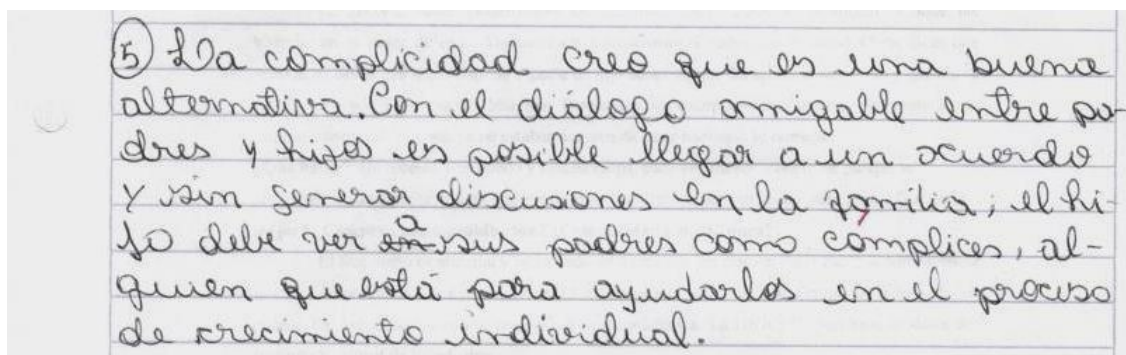 ⑤ La complicidad creo que es una buena
alternativa. Con el diálogo amigable entre pa-
dres y hijos es posible llegar a un acuerdo
y sin generar discusiones en la familia; el hi-
jo debe ver en a sus padres como cómplices, al-
guien que está para ayudarlos en el proceso
de crecimiento individual.